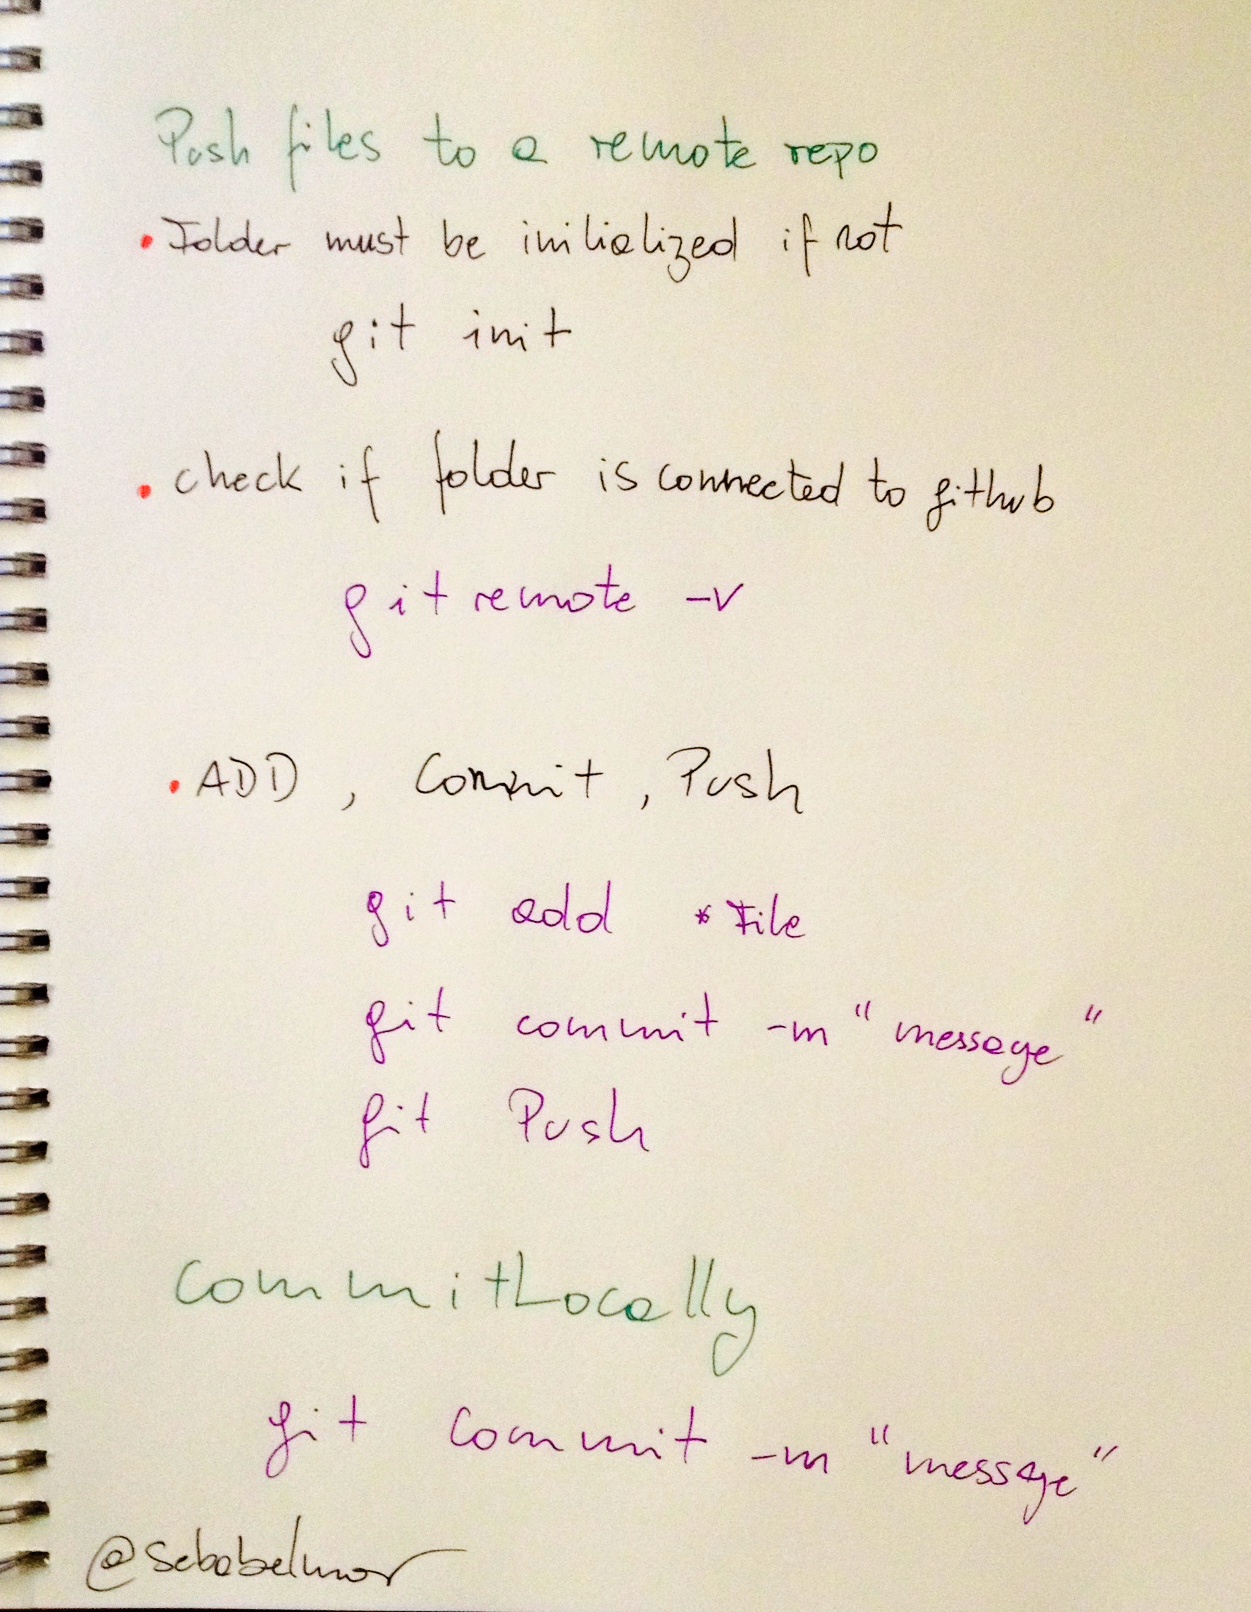 Push files to a remote repo
• Folder must be initialized if not
git init
• check if folder is connected to github
git remote -v
• ADD, Commit, Push
git add *File
git commit -m "message"
git Push
Commit Locally
git commit -m "message"